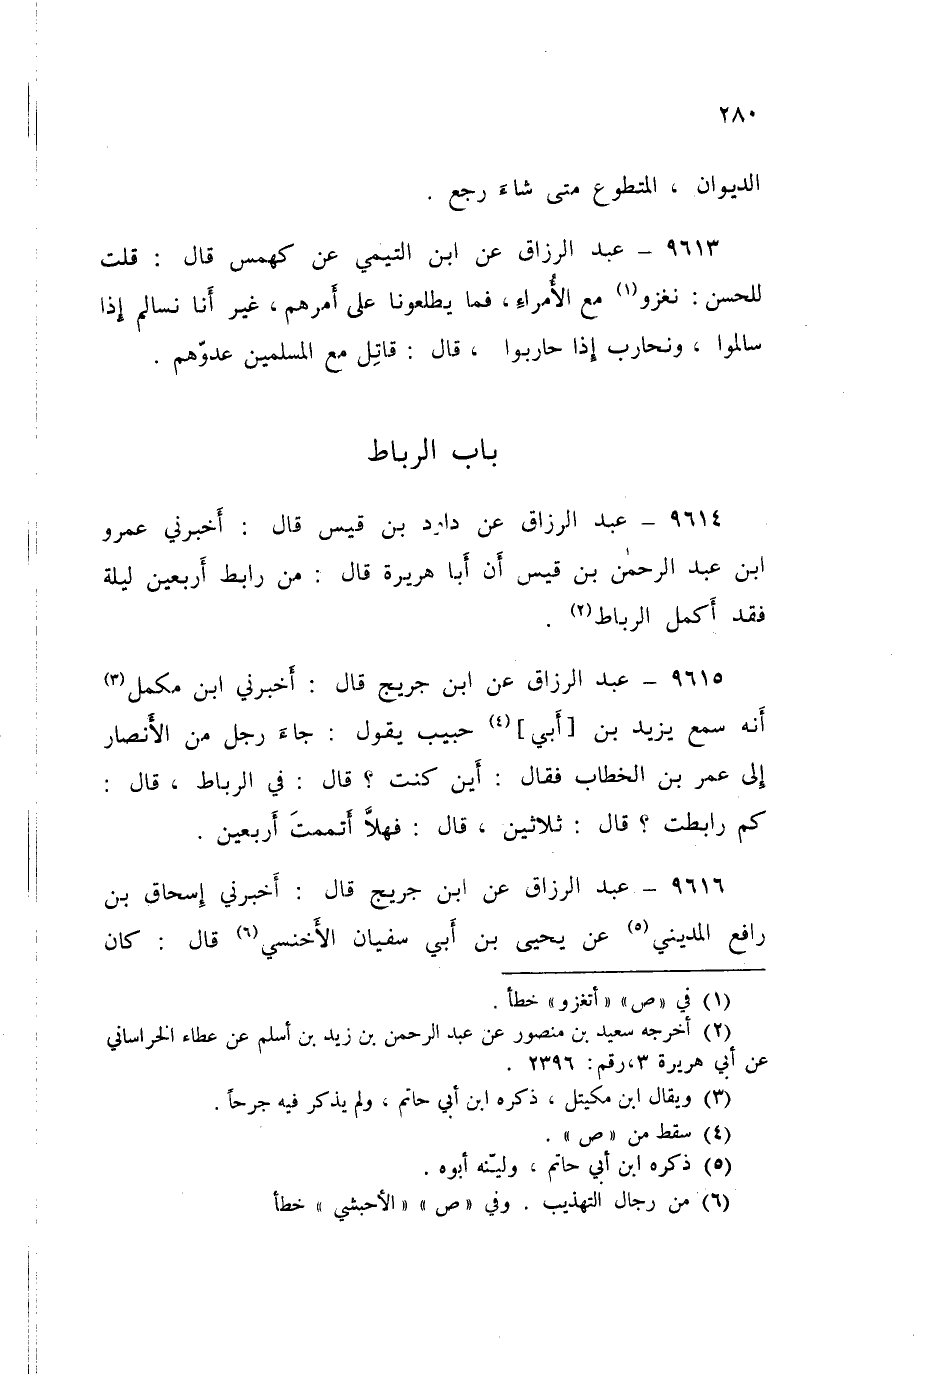 ٢٨٠
الديوان ، المتطوع متى شاءَ رجع .
٩٦١٣ – عبد الرزاق عن ابن التيمي عن كهمس قال : قلت
للحسن : نغزو(١) مع الأُمراءِ، فما يطلعونا على أَمرهم، غير أَنا نسالم إذا
سالموا ، ونحارب إذا حاربوا ، قال : قاتِل مع المسلمين عدوّهم .
باب الرباط
٩٦١٤ – عبد الرزاق عن داود بن قيس قال : أَخبرني عمرو
ابن عبد الرحمٰن بن قيس أَن أَبا هريرة قال : من رابط أَربعين ليلة
فقد أَكمل الرباط(٢) .
٩٦١٥ – عبد الرزاق عن ابن جريج قال : أَخبرني ابن مكمل(٣)
أَنه سمع يزيد بن [أَبي](٤) حبيب يقول : جاءَ رجل من الأَنصار
إلى عمر بن الخطاب فقال : أَين كنت ؟ قال : في الرباط ، قال :
كم رابطت ؟ قال : ثلاثين ، قال : فهلاَّ أَتممتَ أَربعين .
٩٦١٦ – عبد الرزاق عن ابن جريج قال : أَخبرني إسحاق بن
رافع المديني(٥) عن يحيى بن أَبي سفيان الأَخنسي(٦) قال : كان
(١) في «ص» «أتغزو» خطأ .
(٢) أخرجه سعيد بن منصور عن عبد الرحمن بن زيد بن أسلم عن عطاء الخراساني
عن أبي هريرة ٣،رقم: ٢٣٩٦ .
(٣) ويقال ابن مكيتل ، ذكره ابن أبي حاتم ، ولم يذكر فيه جرحاً .
(٤) سقط من «ص» .
(٥) ذكره ابن أبي حاتم ، وليّنه أبوه .
(٦) من رجال التهذيب . وفي «ص» «الأحبشي» خطأ